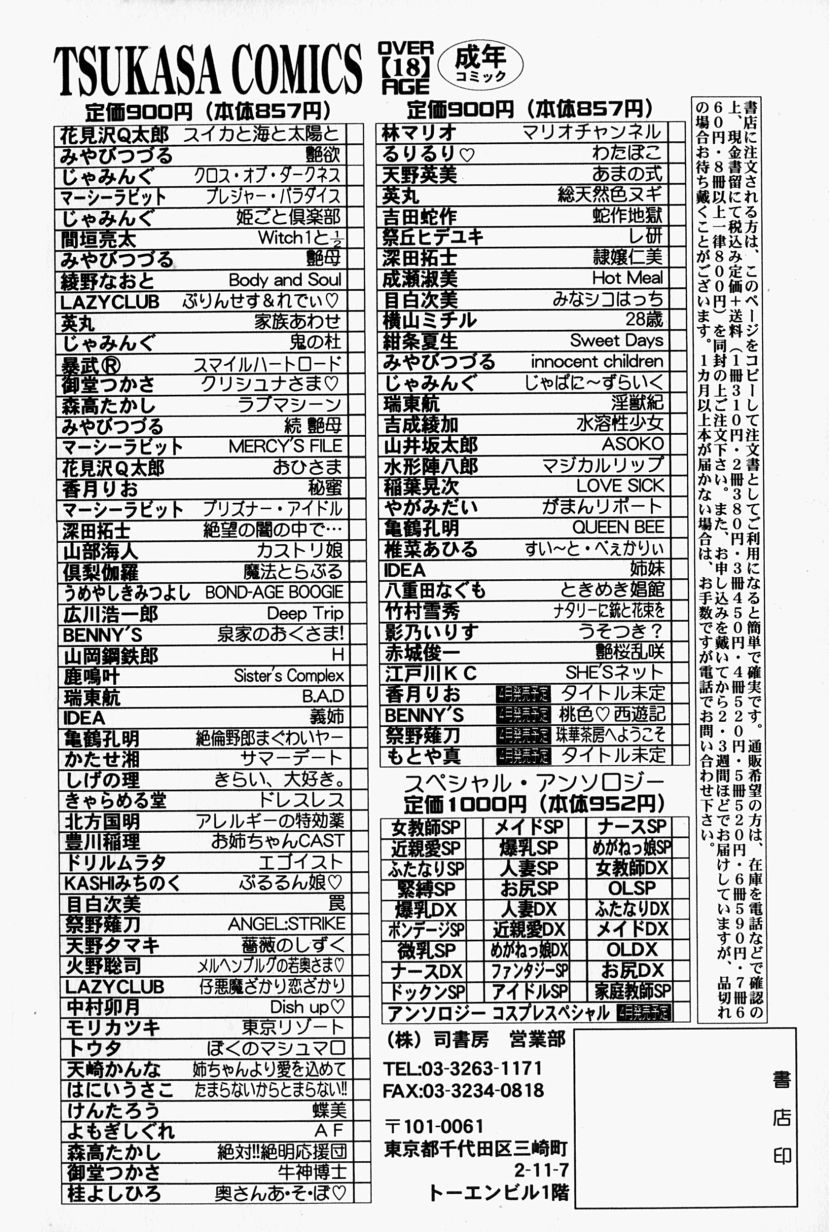 TSUKASA COMICS
OVER
【18】
AGE
成年
コミック
定価900円（本体857円）
花見沢Q太郎 スイカと海と太陽と
みやびつづる 艶欲
じゃみんぐ クロス・オブ・ダークネス
マーシーラビット プレジャー・パラダイス
じゃみんぐ 姫ごと倶楽部
間垣亮太 Witch1と½
みやびつづる 艶母
綾野なおと Body and Soul
LAZYCLUB ぷりんせす&れでぃ♡
英丸 家族あわせ
じゃみんぐ 鬼の杜
暴武Ⓡ スマイルハートロード
御堂つかさ クリシュナさま♡
森高たかし ラブマシーン
みやびつづる 続 艶母
マーシーラビット MERCY'S FILE
花見沢Q太郎 おひさま
香月りお 秘蜜
マーシーラビット プリズナー・アイドル
深田拓士 絶望の闇の中で…
山部海人 カストリ娘
倶梨伽羅 魔法とらぶる
うめやしきみつよし BOND-AGE BOOGIE
広川浩一郎 Deep Trip
BENNY'S 泉家のおくさま!
山岡鋼鉄郎 H
鹿鳴叶 Sister's Complex
瑞東航 B.A.D
IDEA 義姉
亀鶴孔明 絶倫野郎まぐわいヤー
かたせ湘 サマーデート
しげの理 きらい、大好き。
きゃらめる堂 ドレスレス
北方国明 アレルギーの特効薬
豊川稲理 お姉ちゃんCAST
ドリルムラタ エゴイスト
KASHIみちのく ぷるるん娘♡
目白次美 罠
祭野薙刀 ANGEL:STRIKE
天野タマキ 薔薇のしずく
火野聡司 メルヘンブルグの若奥さま♡
LAZYCLUB 仔悪魔ざかり恋ざかり
中村卯月 Dish up♡
モリカツキ 東京リゾート
トウタ ぼくのマシュマロ
天崎かんな 姉ちゃんより愛を込めて
はにいうさこ たまらないからとまらない!!
けんたろう 蝶美
よもぎしぐれ AF
森高たかし 絶対!!絶明応援団
御堂つかさ 牛神博士
桂よしひろ 奥さんあ・そ・ぼ♡
定価900円（本体857円）
林マリオ マリオチャンネル
るりるり♡ わたぼこ
天野英美 あまの式
英丸 総天然色ヌギ
吉田蛇作 蛇作地獄
祭丘ヒデユキ レ研
深田拓士 隷嬢仁美
成瀬淑美 Hot Meal
目白次美 みなシコはっち
横山ミチル 28歳
紺条夏生 Sweet Days
みやびつづる innocent children
じゃみんぐ じゃぱに〜ずらいく
瑞東航 淫獣紀
吉成綾加 水溶性少女
山井坂太郎 ASOKO
水形陣八郎 マジカルリップ
稲葉晃次 LOVE SICK
やがみだい がまんリポート
亀鶴孔明 QUEEN BEE
椎菜あひる すい〜と・べぇかりぃ
IDEA 姉妹
八重田なぐも ときめき娼館
竹村雪秀 ナタリーに銃と花束を
影乃いりす うそつき？
赤城俊一 艶桜乱咲
江戸川KC SHE'Sネット
香月りお 4月発売予定 タイトル未定
BENNY'S 4月発売予定 桃色♡西遊記
祭野薙刀 4月発売予定 珠華茶房へようこそ
もとや真 4月発売予定 タイトル未定
スペシャル・アンソロジー
定価1000円（本体952円）
女教師SP メイドSP ナースSP
近親愛SP 爆乳SP めがねっ娘SP
ふたなりSP 人妻SP 女教師DX
緊縛SP お尻SP OLSP
爆乳DX 人妻DX ふたなりDX
ボンデージSP 近親愛DX メイドDX
微乳SP めがねっ娘DX OLDX
ナースDX ファンタジーSP お尻DX
ドックンSP アイドルSP 家庭教師SP
アンソロジー コスプレスペシャル 4月発売予定
（株）司書房 営業部
TEL:03-3263-1171
FAX:03-3234-0818
〒101-0061
東京都千代田区三崎町
2-11-7
トーエンビル1階
書店に注文される方は、このページをコピーして注文書としてご利用になると簡単で確実です。通販希望の方は、在庫を電話などで確認の
上、現金書留にて税込み定価＋送料（1冊310円・2冊380円・3冊450円・4冊520円・5冊520円・6冊590円・7冊6
60円・8冊以上一律800円）を同封の上ご注文下さい。また、お申し込みを戴いてから2・3週間ほどでお届けしていますが、品切れ
の場合お待ち戴くことがございます。1カ月以上本が届かない場合は、お手数ですが電話でお問い合わせ下さい。
書店印